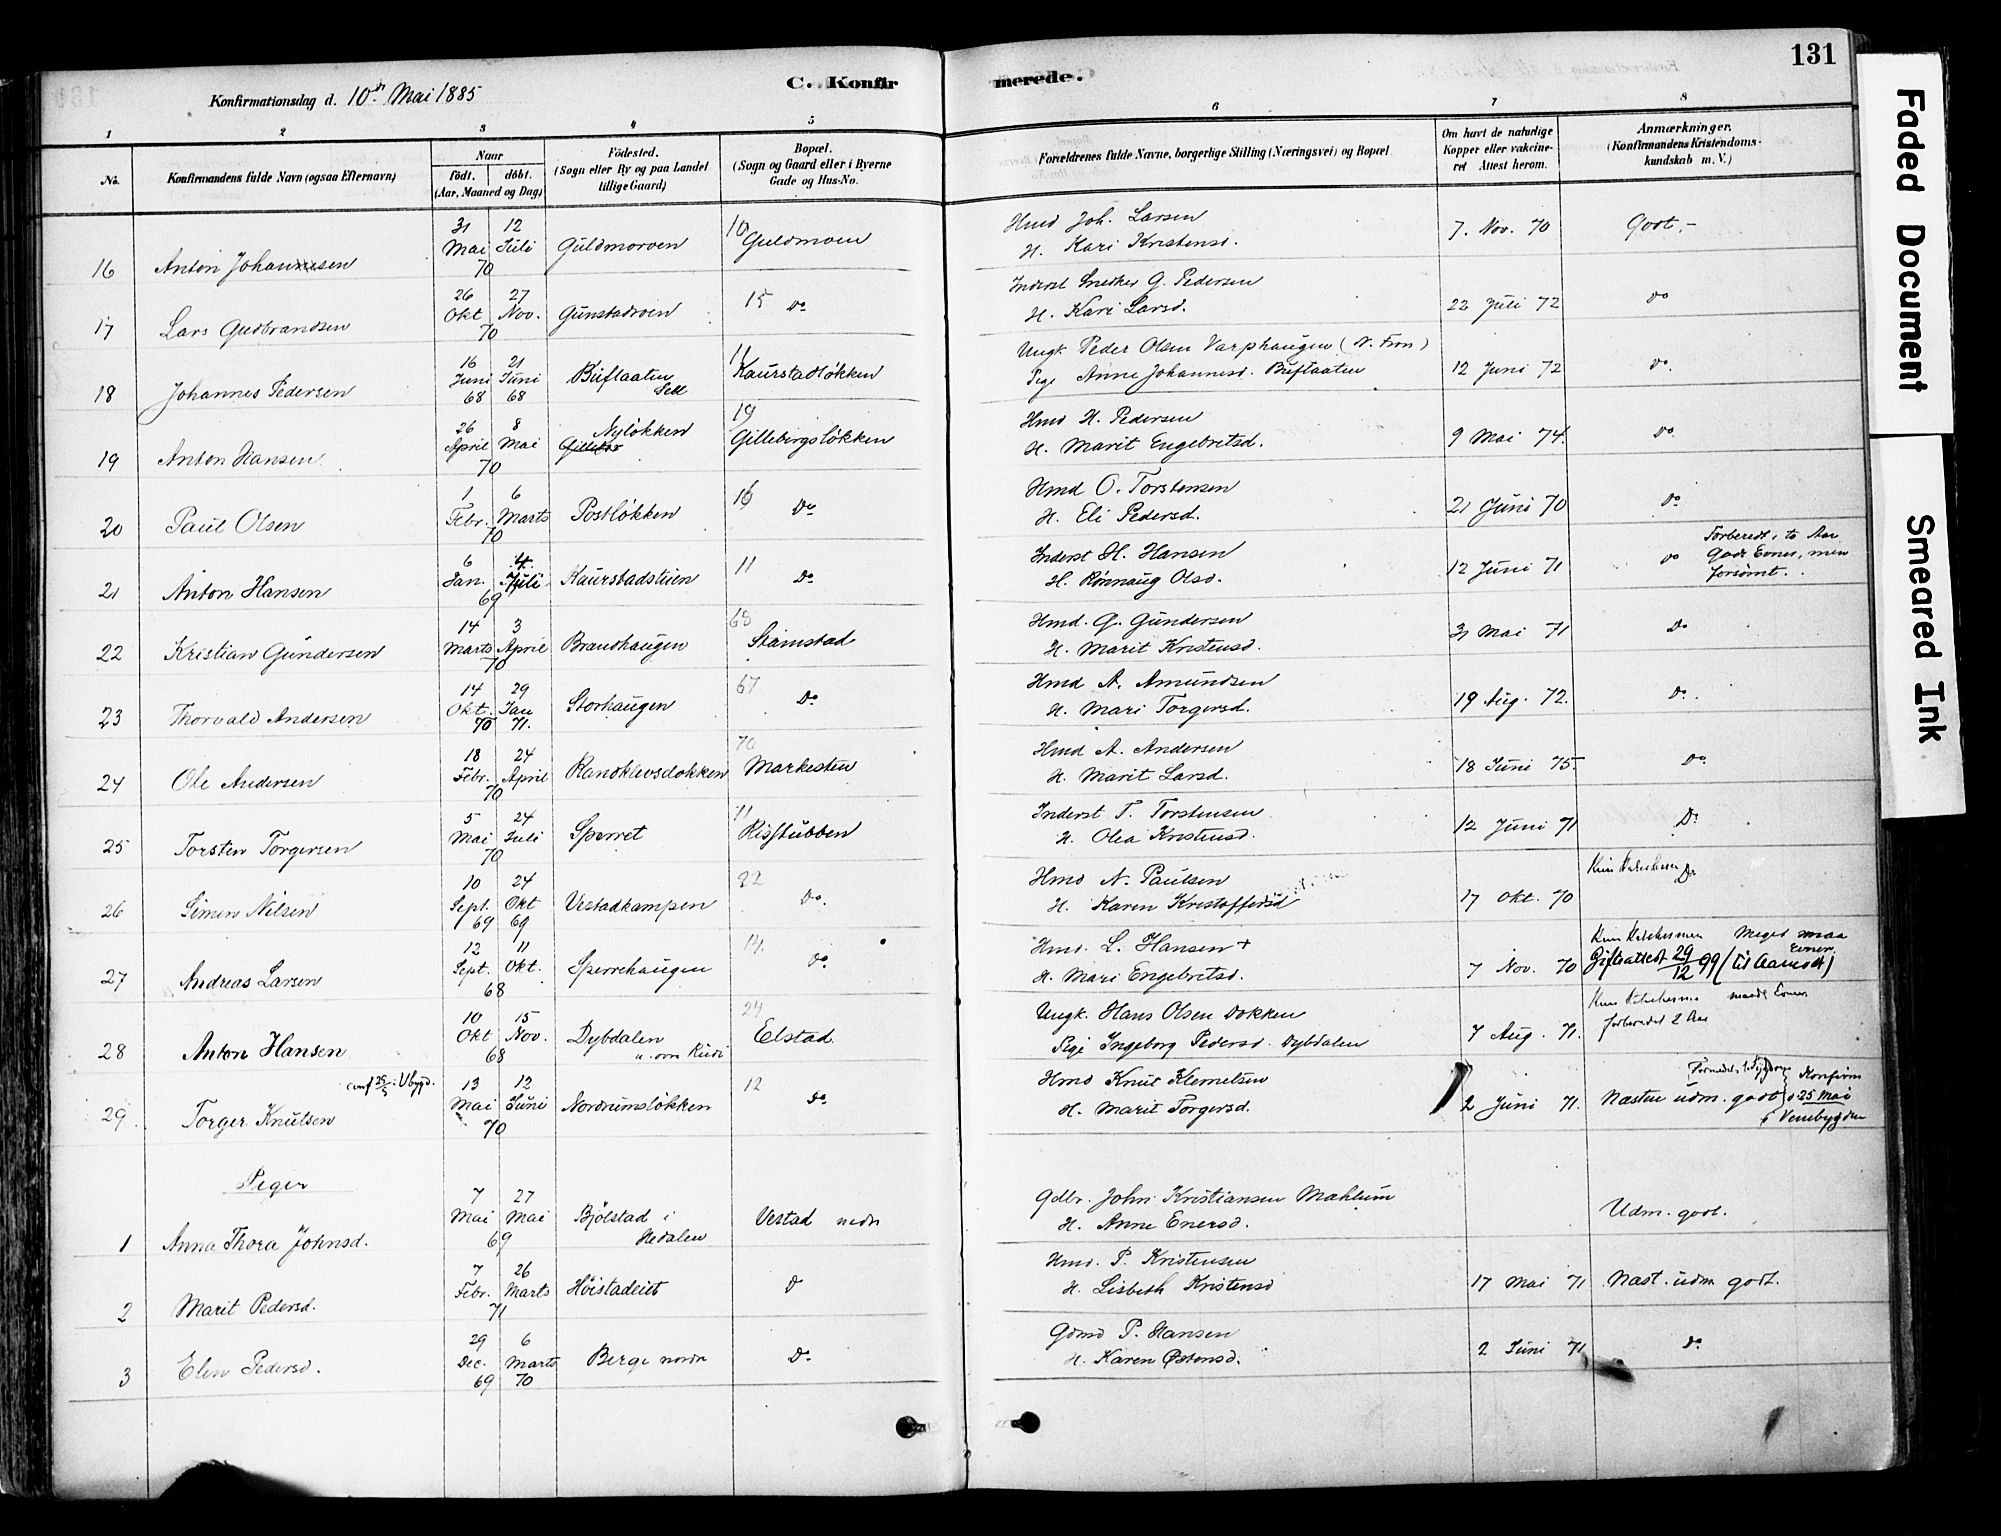 131
C. Konfirmerede.
Konfirmationsdag d. 10de Mai 1885
1 2 3 4 5 6 7 8
No.
Konfirmandens fulde Navn (ogsaa Efternavn)
Naar
født. døbt.
(Aar, Maaned og Dag)
Fødested.
(Sogn eller By og paa Landet
tillige Gaard)
Bopæl.
(Sogn og Gaard eller i Byerne
Gade og Hus-No.
Forældrenes fulde Navne, borgerlige Stilling (Næringsvei) og Bopæl
Om havt de naturlige
Kopper eller vakcine-
ret Attest herom.
Anmærkninger.
(Konfirmandens Kristendoms-
kundskab m. V.)
16 Anton Johansen 31 Mai 12 Juli 70 Guldmoroen 10 Guldmoen Hmd Joh. Larsen H. Kari Kristensd. 7. Nov. 70 Godt.-
17 Lars Gudbrandsen 26 Okt 27 Nov. 70 Gunstadroen 15 Do Inderst Snedker G. Pedersen H. Kari Larsd. 22 Juli 72 Do
18 Johannes Pedersen 16 Juni 68 21 Juni 68 Buflaaten Sell 11 Kaurstadløkken Ungk. Peder Olsen Varphaugen (N. Fron) Pige Anne Johannesd. Buflaaten 12 Juni 72 Do.
19 Anton Hansen 26 April 8 Mai 70 Nyløkken 19 Gillebergsløkken Hmd H. Pedersen H. Marit Engebretsd. 9 Mai 74. Do
20 Paul Olsen 1 Febr. 6 Marts 70 Postløkken 16 Do O. Torstensen Hmd H. Eli Pedersd. 21 Juni 70 Do
21 Anton Hansen 6 Jan. 4 Juli 69 Kaurstadstuen 11 Do Inderst H. Hansen H. Rønnaug Olsd. 12 Juni 71 Do Forberedt i to Aar Gode Evner, men forsømt.
22 Kristian Gundersen 14 Marts 3 April 70 Brandhaugen Stamstad Hmd. G. Gundersen H. Marit Kristensd. 31 Mai 71 Do
23 Thorvald Andersen 14 Okt. 70 29 Jan 71. Storhaugen 67 Do Hmd A. Amundsen H. Mari Torgersd. 19 Aug. 72. Do.
24 Ole Andersen 18 Febr. 24 April 70 Randklevsdokken 70 Markesten Hmd A. Andersen H. Marit Larsd. 18 Juni 75. Do.
25 Torsten Torgersen 5 Mai 24 Juli 70 Sperret 11 Risstubben Inderst T. Torstensen H. Olea Kristensd. 12 Juni 71 Do
26 Simen Nilsen 10 Sept. 69 24 Okt 69 Vestadkampen 22 Do. Hmd N. Paulsen H. Karen Kristoffersd 17 Okt. 70 Do
27 Andreas Larsen 12 Sept. 11 Okt. 68 Sperrehaugen 14. Do Hmd. L. Hansen + H. Mari Engebretsd. 7 Nov. 70 Meget smaa Evner Gifteattest 29/12 99
28 Anton Hansen 10 Okt 15 Nov. 68 Dybdalen 24 Elstad Ungk. Hans Olsen Dokken Pige Ingeborg Pedersd. Dybdalen 7 Aug. 71. forberedet 2 Aar
29 Torger Knutsen 13 Mai 12 Juni 70 Nordrumsløkken 12 Do Hmd Knut Klemetsen H. Marit Torgersd. 2 Juni 71. Næsten udm. godt Konfirm 25 Mai i Venebygden
Piger
1 Anna Thora Johnsd. 7 Mai 27 Mai 69 Bjølstad i Hedalen Vestad nedr Gdbr. John Kristiansen Mæhlum H. Anne Enersd. Udm. godt.
2 Marit Pedersd. 7 Febr. 26 Marts 71 Høistadeiet Do Hmd. P. Kristensen H. Lisbeth Kristensd 17 Mai 71 Næst. udm godt.
3 Elen Pedersd. 29 Dec. 69 6 Marts 70 Berge nordr Do Gdmd P. Hansen H. Karen Østensd. 2 Juni 71 Do
Faded Document
Smeared Ink